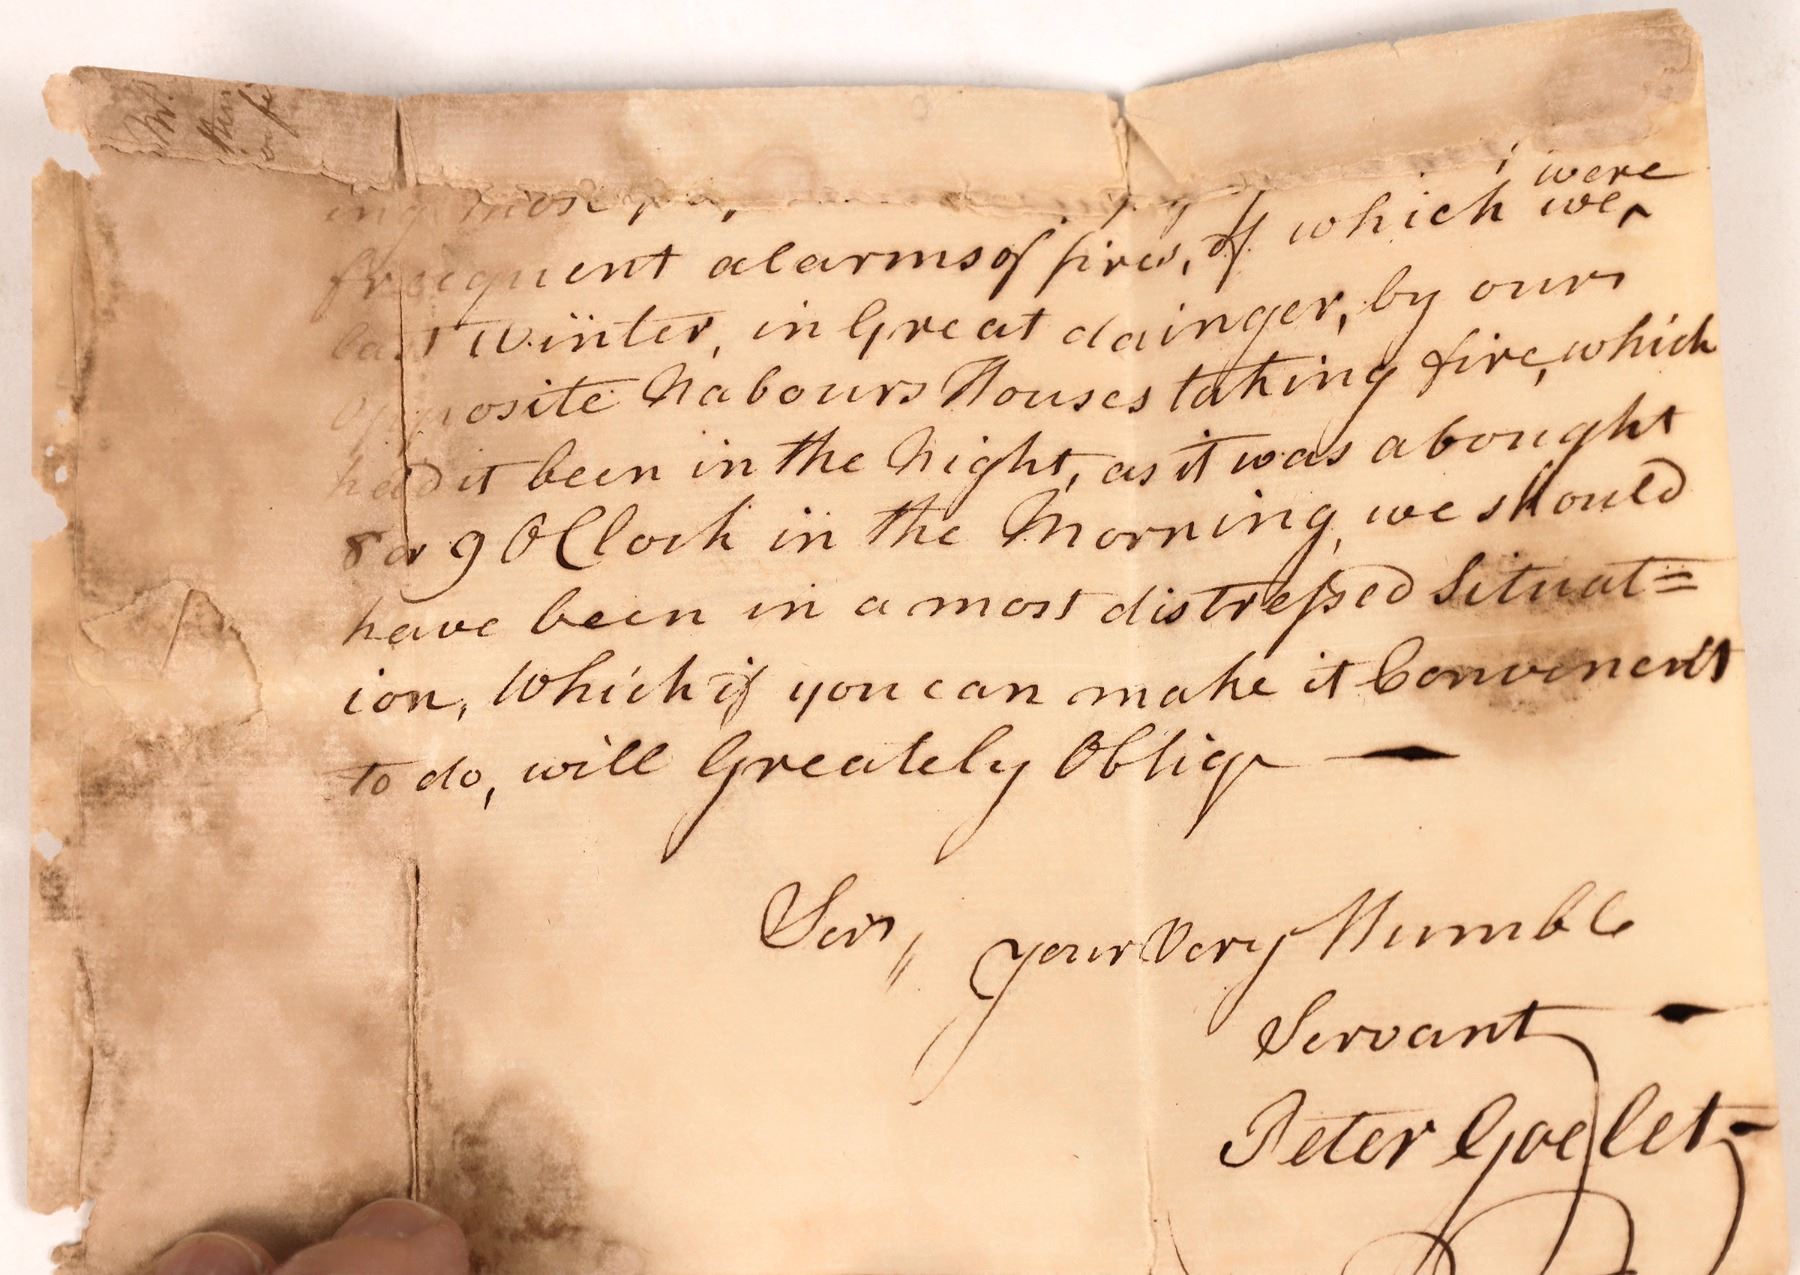 were
frequent alarms of fires, of which we ‸
last Winter, in Great dainger, by ours
opposite Nabours Houses taking fire, which
had it been in the Night, as it was abought
8 or 9 OClock in the Morning, we should
have been in a most distreſsed Situat=
ion, Which if you can make it Convenent
to do, will Greately Oblige —
Sir, Your Very Humble
Servant —
Peter Goelet